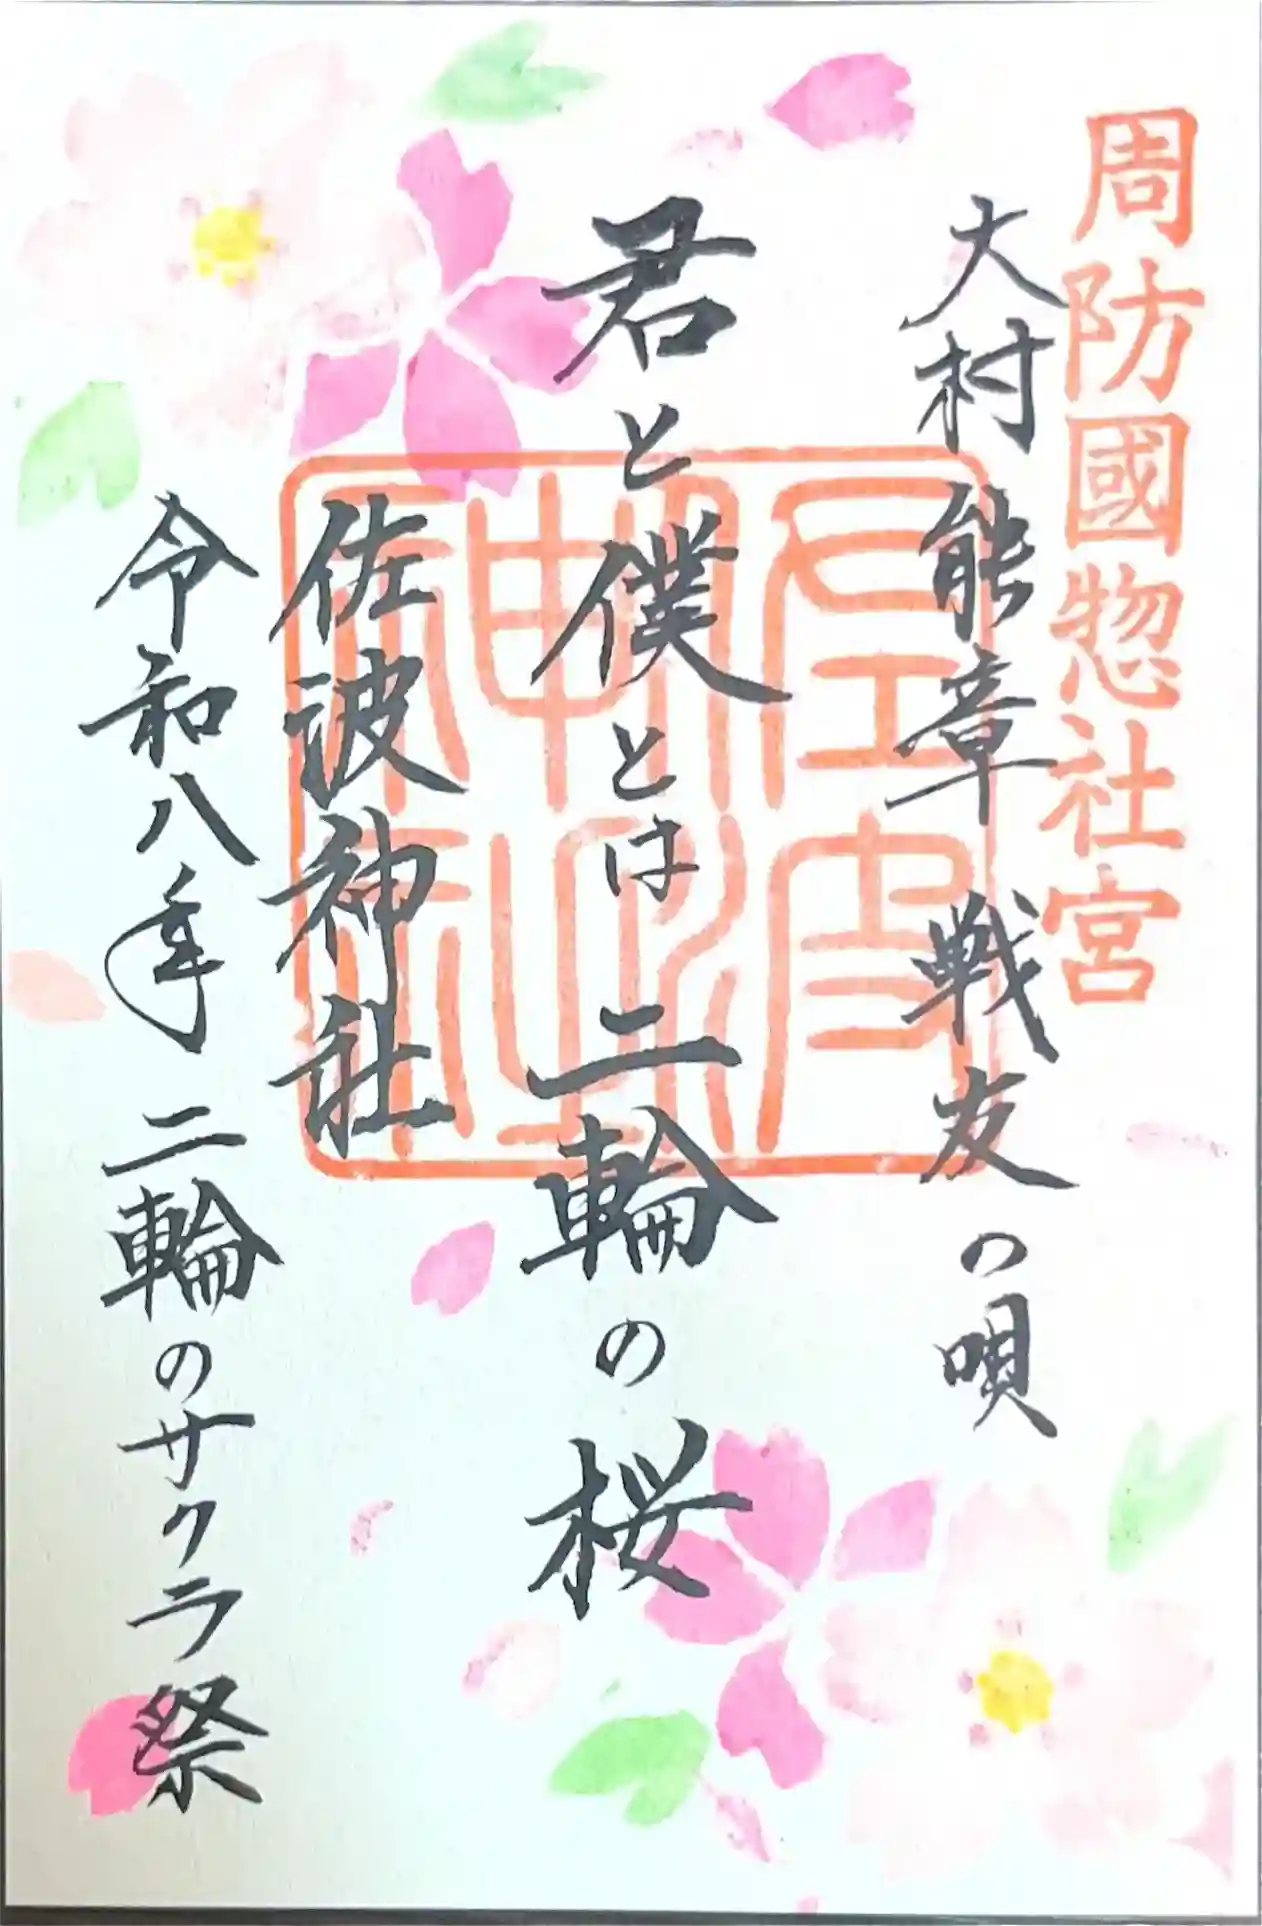 周防國惣社宮
大村能章 戦友の唄
君と僕とは二輪の桜
佐波神社
令和八年 二輪のサクラ祭
佐波神社之印